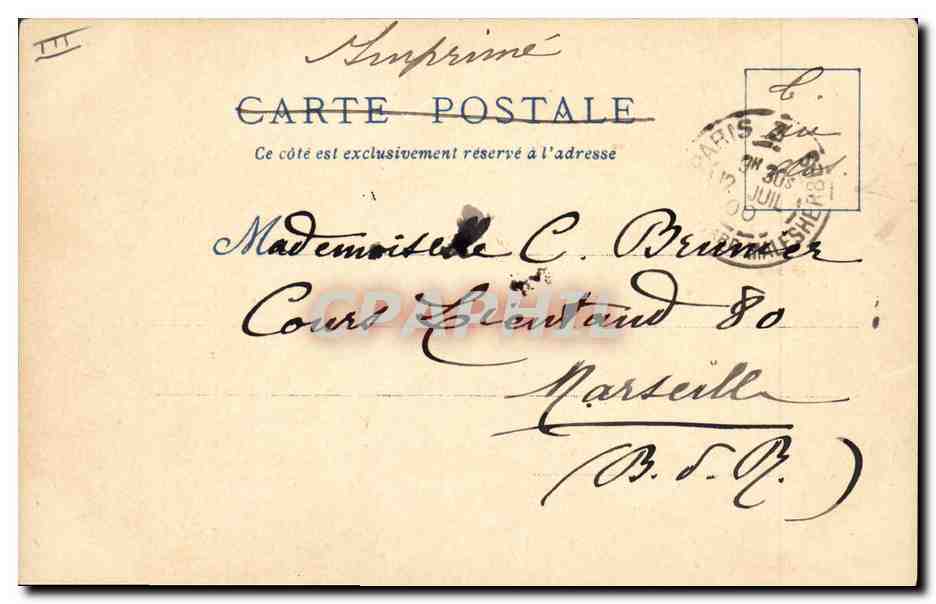 III
Imprimé
CARTE POSTALE
Ce côté est exclusivement réservé à l'adresse
PARIS
30S
JUIL
00
MALESHERBES
Mademoiselle C. Brunner
Cours Lieutaud 80
Marseille
(B. d. R.)
CPAPHIL